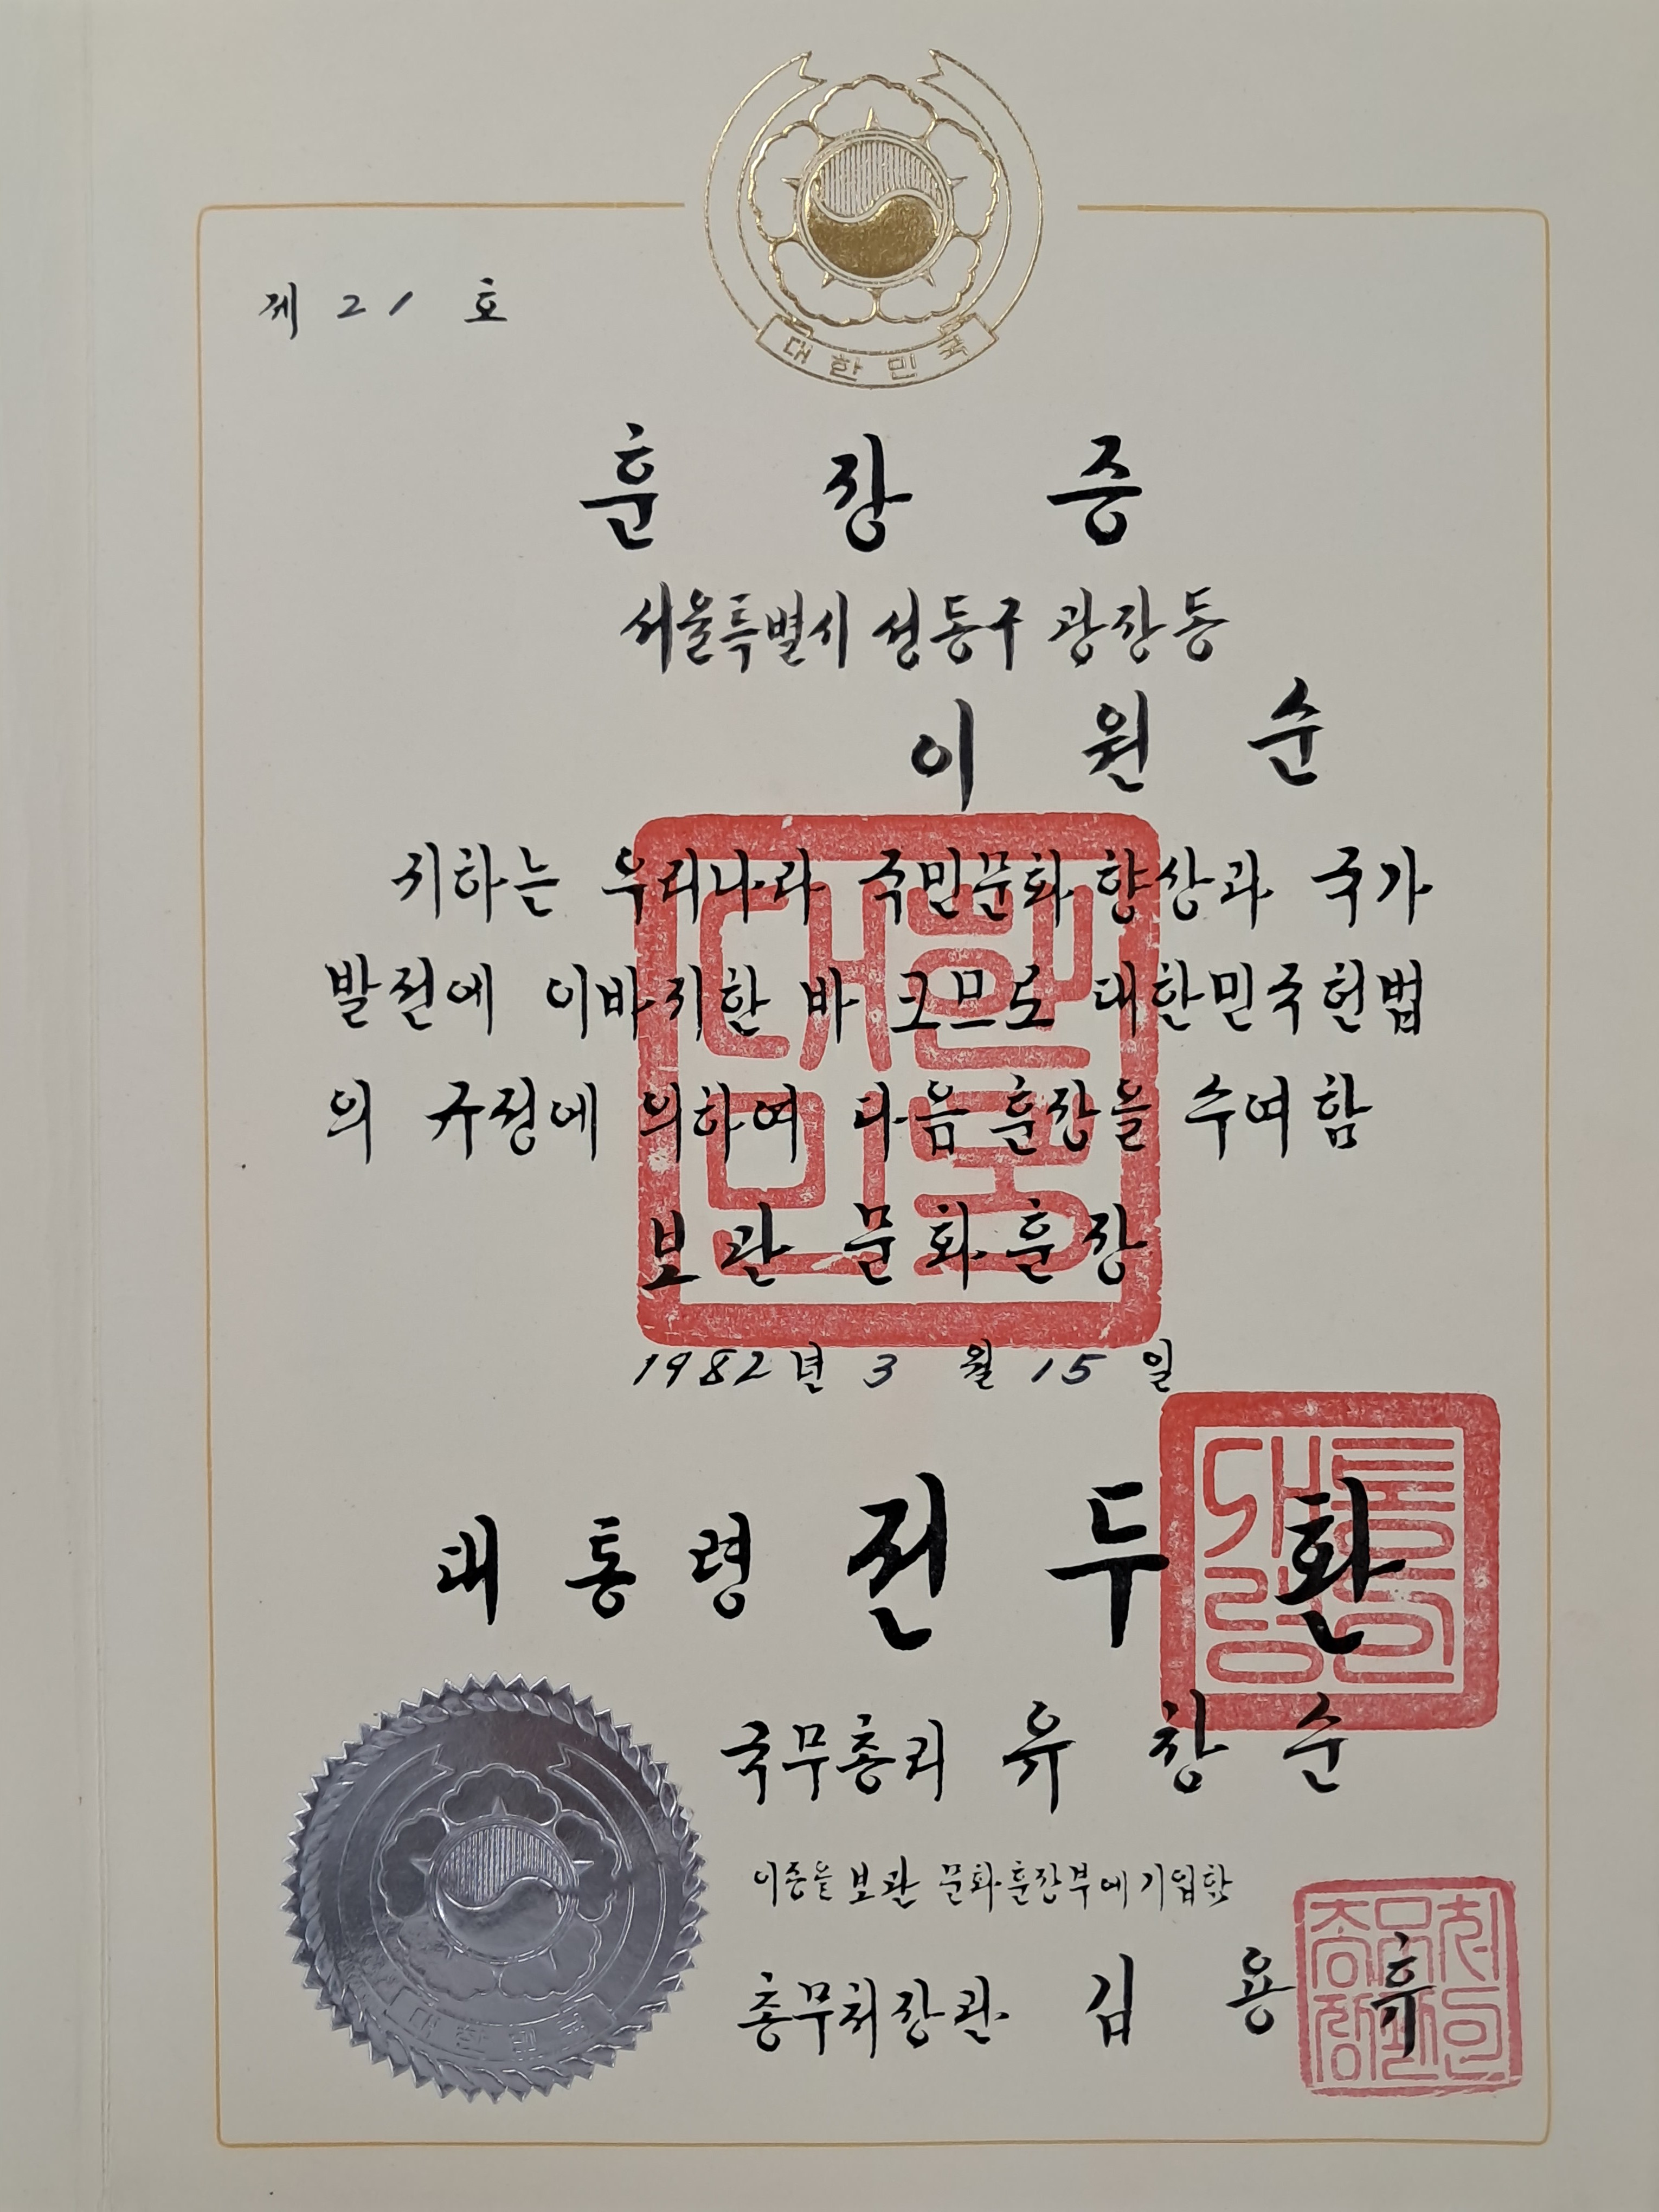 대한민국
제 21 호
훈 장 증
서울특별시 성동구 광장동
이 원 순
귀하는 우리나라 국민문화 향상과 국가
발전에 이바지한 바 크므로 대한민국헌법
의 규정에 의하여 다음 훈장을 수여함
보관 문화훈장
대한민국
1982년 3 월 15 일
대 통 령 전 두 환
국무총리 유 창 순
이증을 보관 문화훈장부에기입함
총무처장관 김 용 휴
대한민국